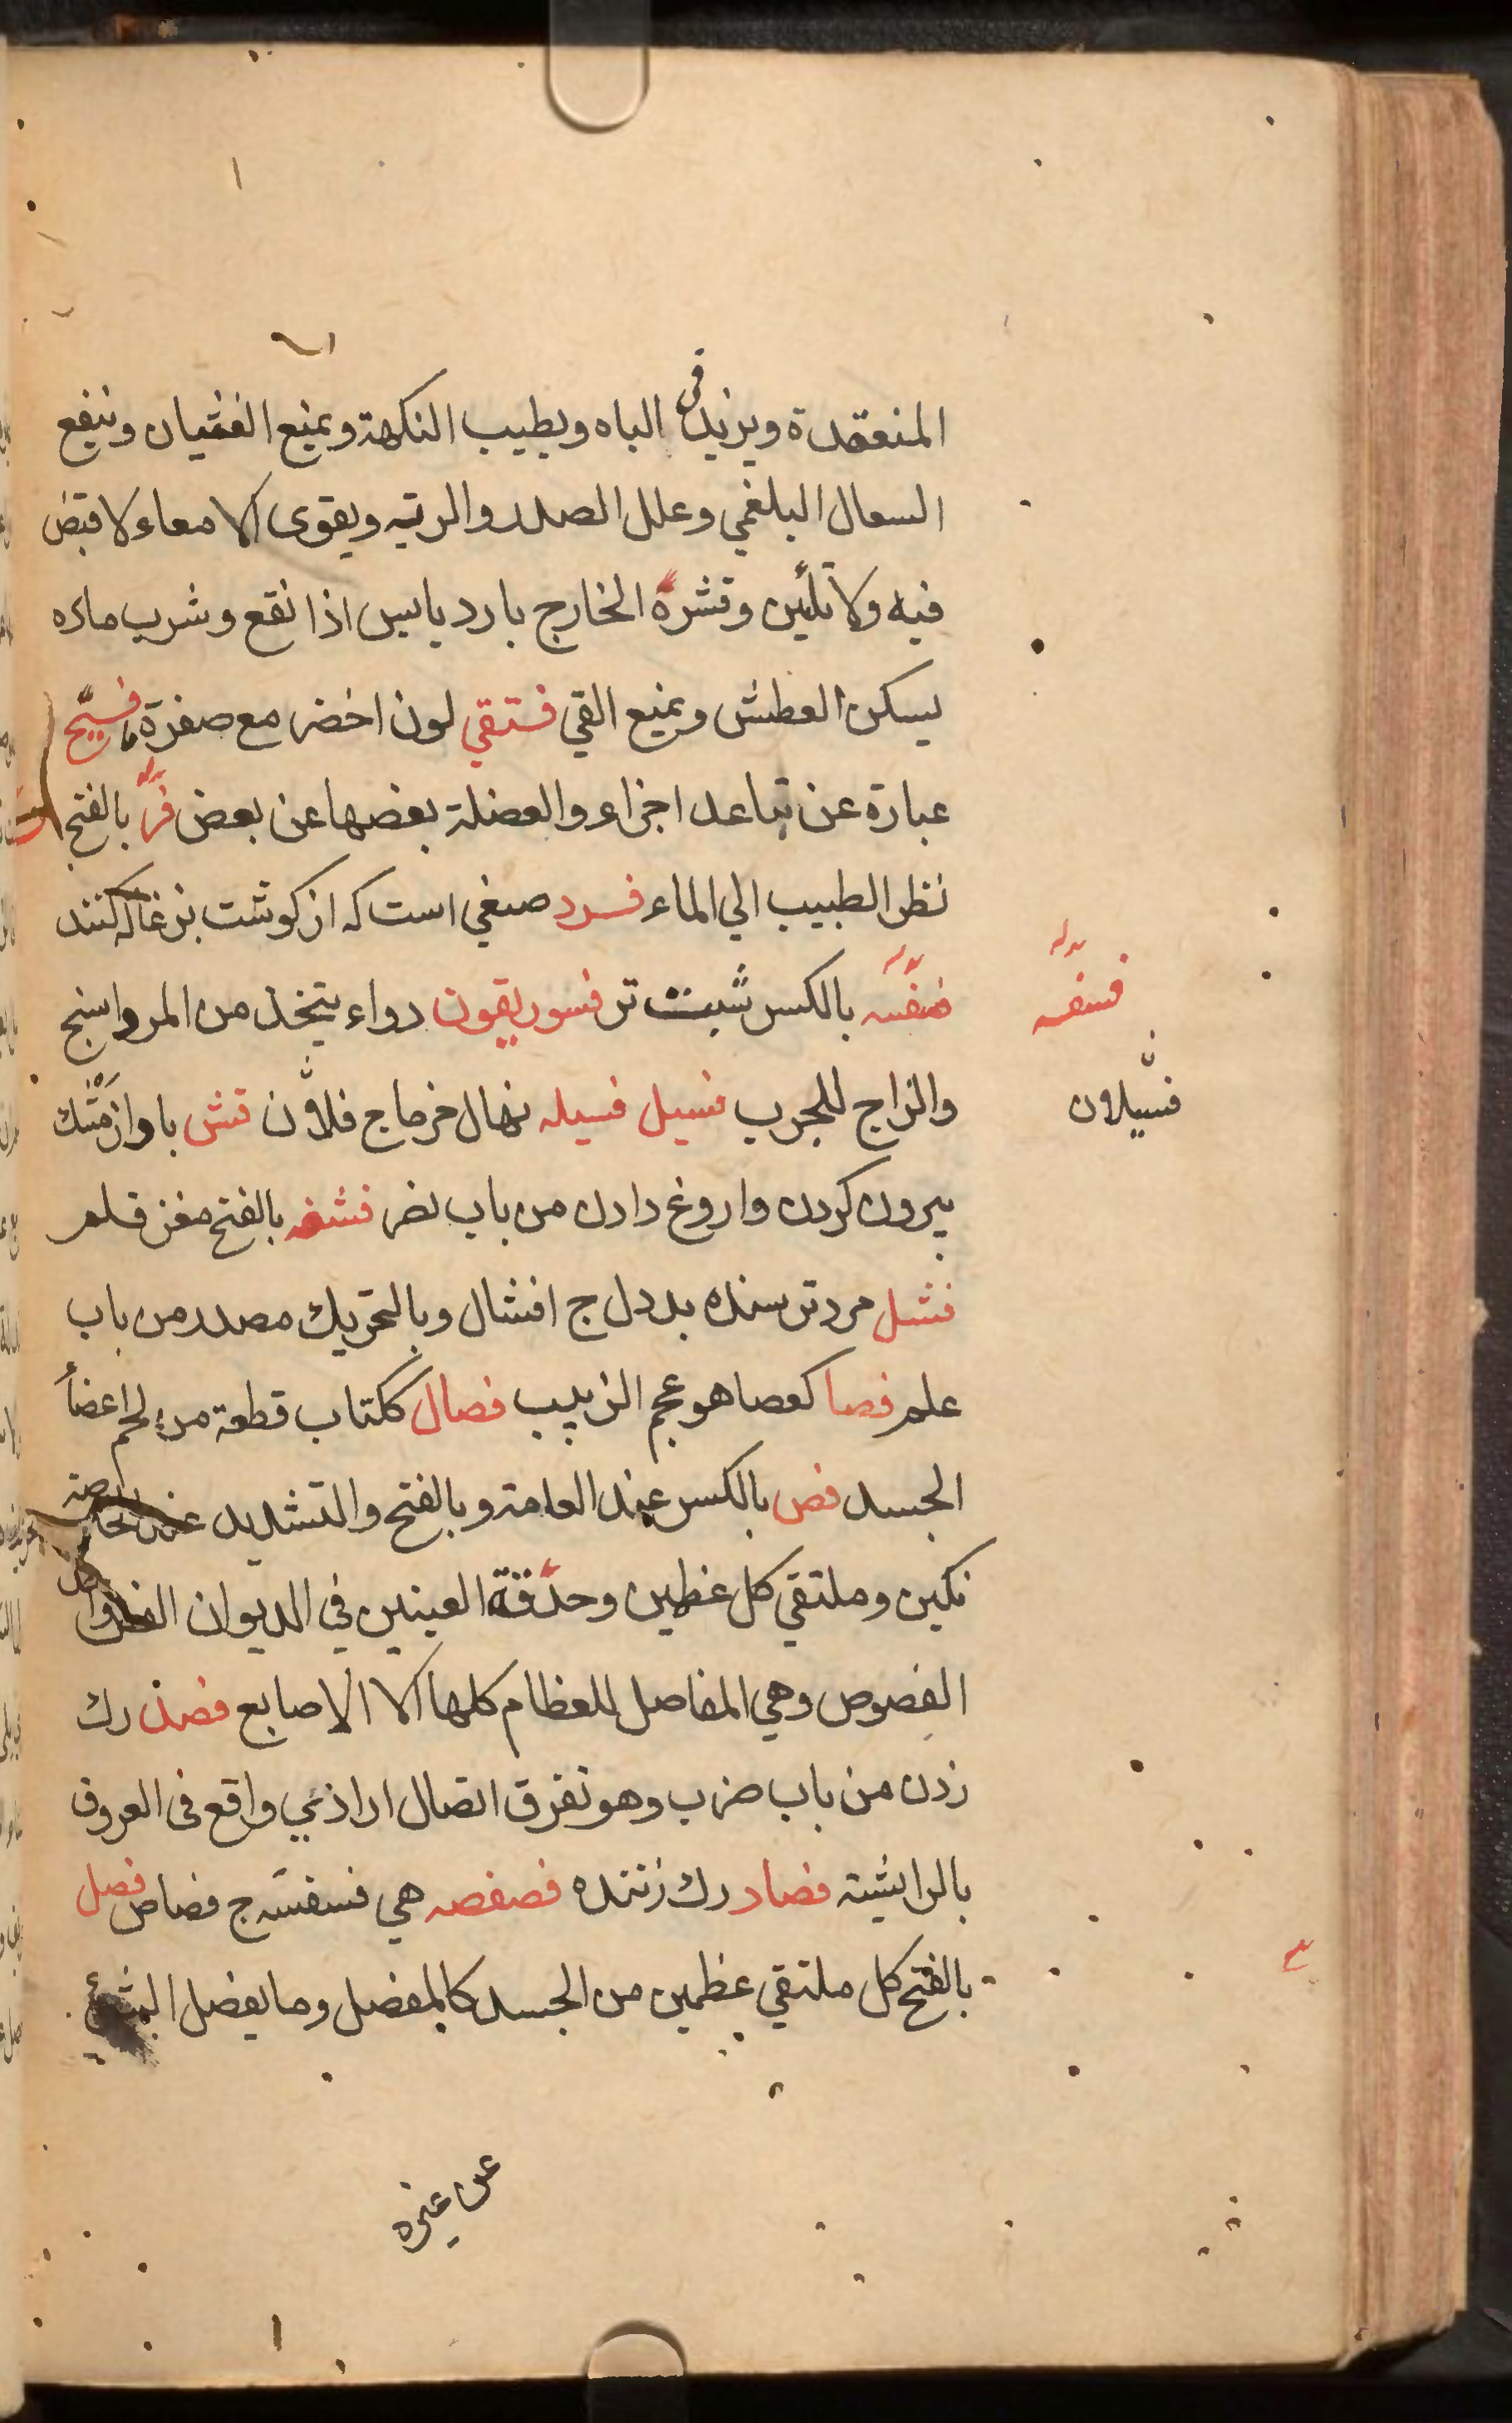 المنعقدة ويزيد في الباه ويطيب النكهة ويمنع الغثيان وينفع
السعال البلغمي وعلل الصدر والريه ويقوى الامعاء لا قبض
فيه ولا تليين وقشره الخارج بارد يابس اذا نقع وشرب ماءه
يسكن العطش ويمنع القي فستقي لون اخضر مع صفرة
عبارة عن تباعد اجزاء والعضلة بعضها عن بعض بالفتح
نظر الطبيب الي الماء فسرد صبغي است كه از كوشت بزغاله كنند
بالكسر تر فسوريقون دواء يتخذ من المرداسنج
والزاج للجرب فسيل فسيله نهال خرما ج فش باد از مشك
بيرون كردن واروغ دادن من باب نصر بالفتح مغز قلم
فشل مرد ترسنده بددل ج افشال وبالتحريك مصدر من باب
علم فصا كعصا هو عجم الزبيب فصال ككتاب قطعة من لحم اعضأ
الجسد فص بالكسر عند العامة وبالفتح والتشديد عند
نكين وملتقي كل عظمين وحدقة العينين في الديوان
الفصوص وهي المفاصل للعظام كلها الا الاصابع فصد رك
زدن من باب ضرب وهو تفرق اتصال ارادئي واقع في العروق
فصاد رك زننده فصفصه هي فسفسه ج فصافص فصل
بالفتح كل ملتقي عظمين من الجسد كالمفصل وما يفصل الشئ
عن غيره
فسيلان